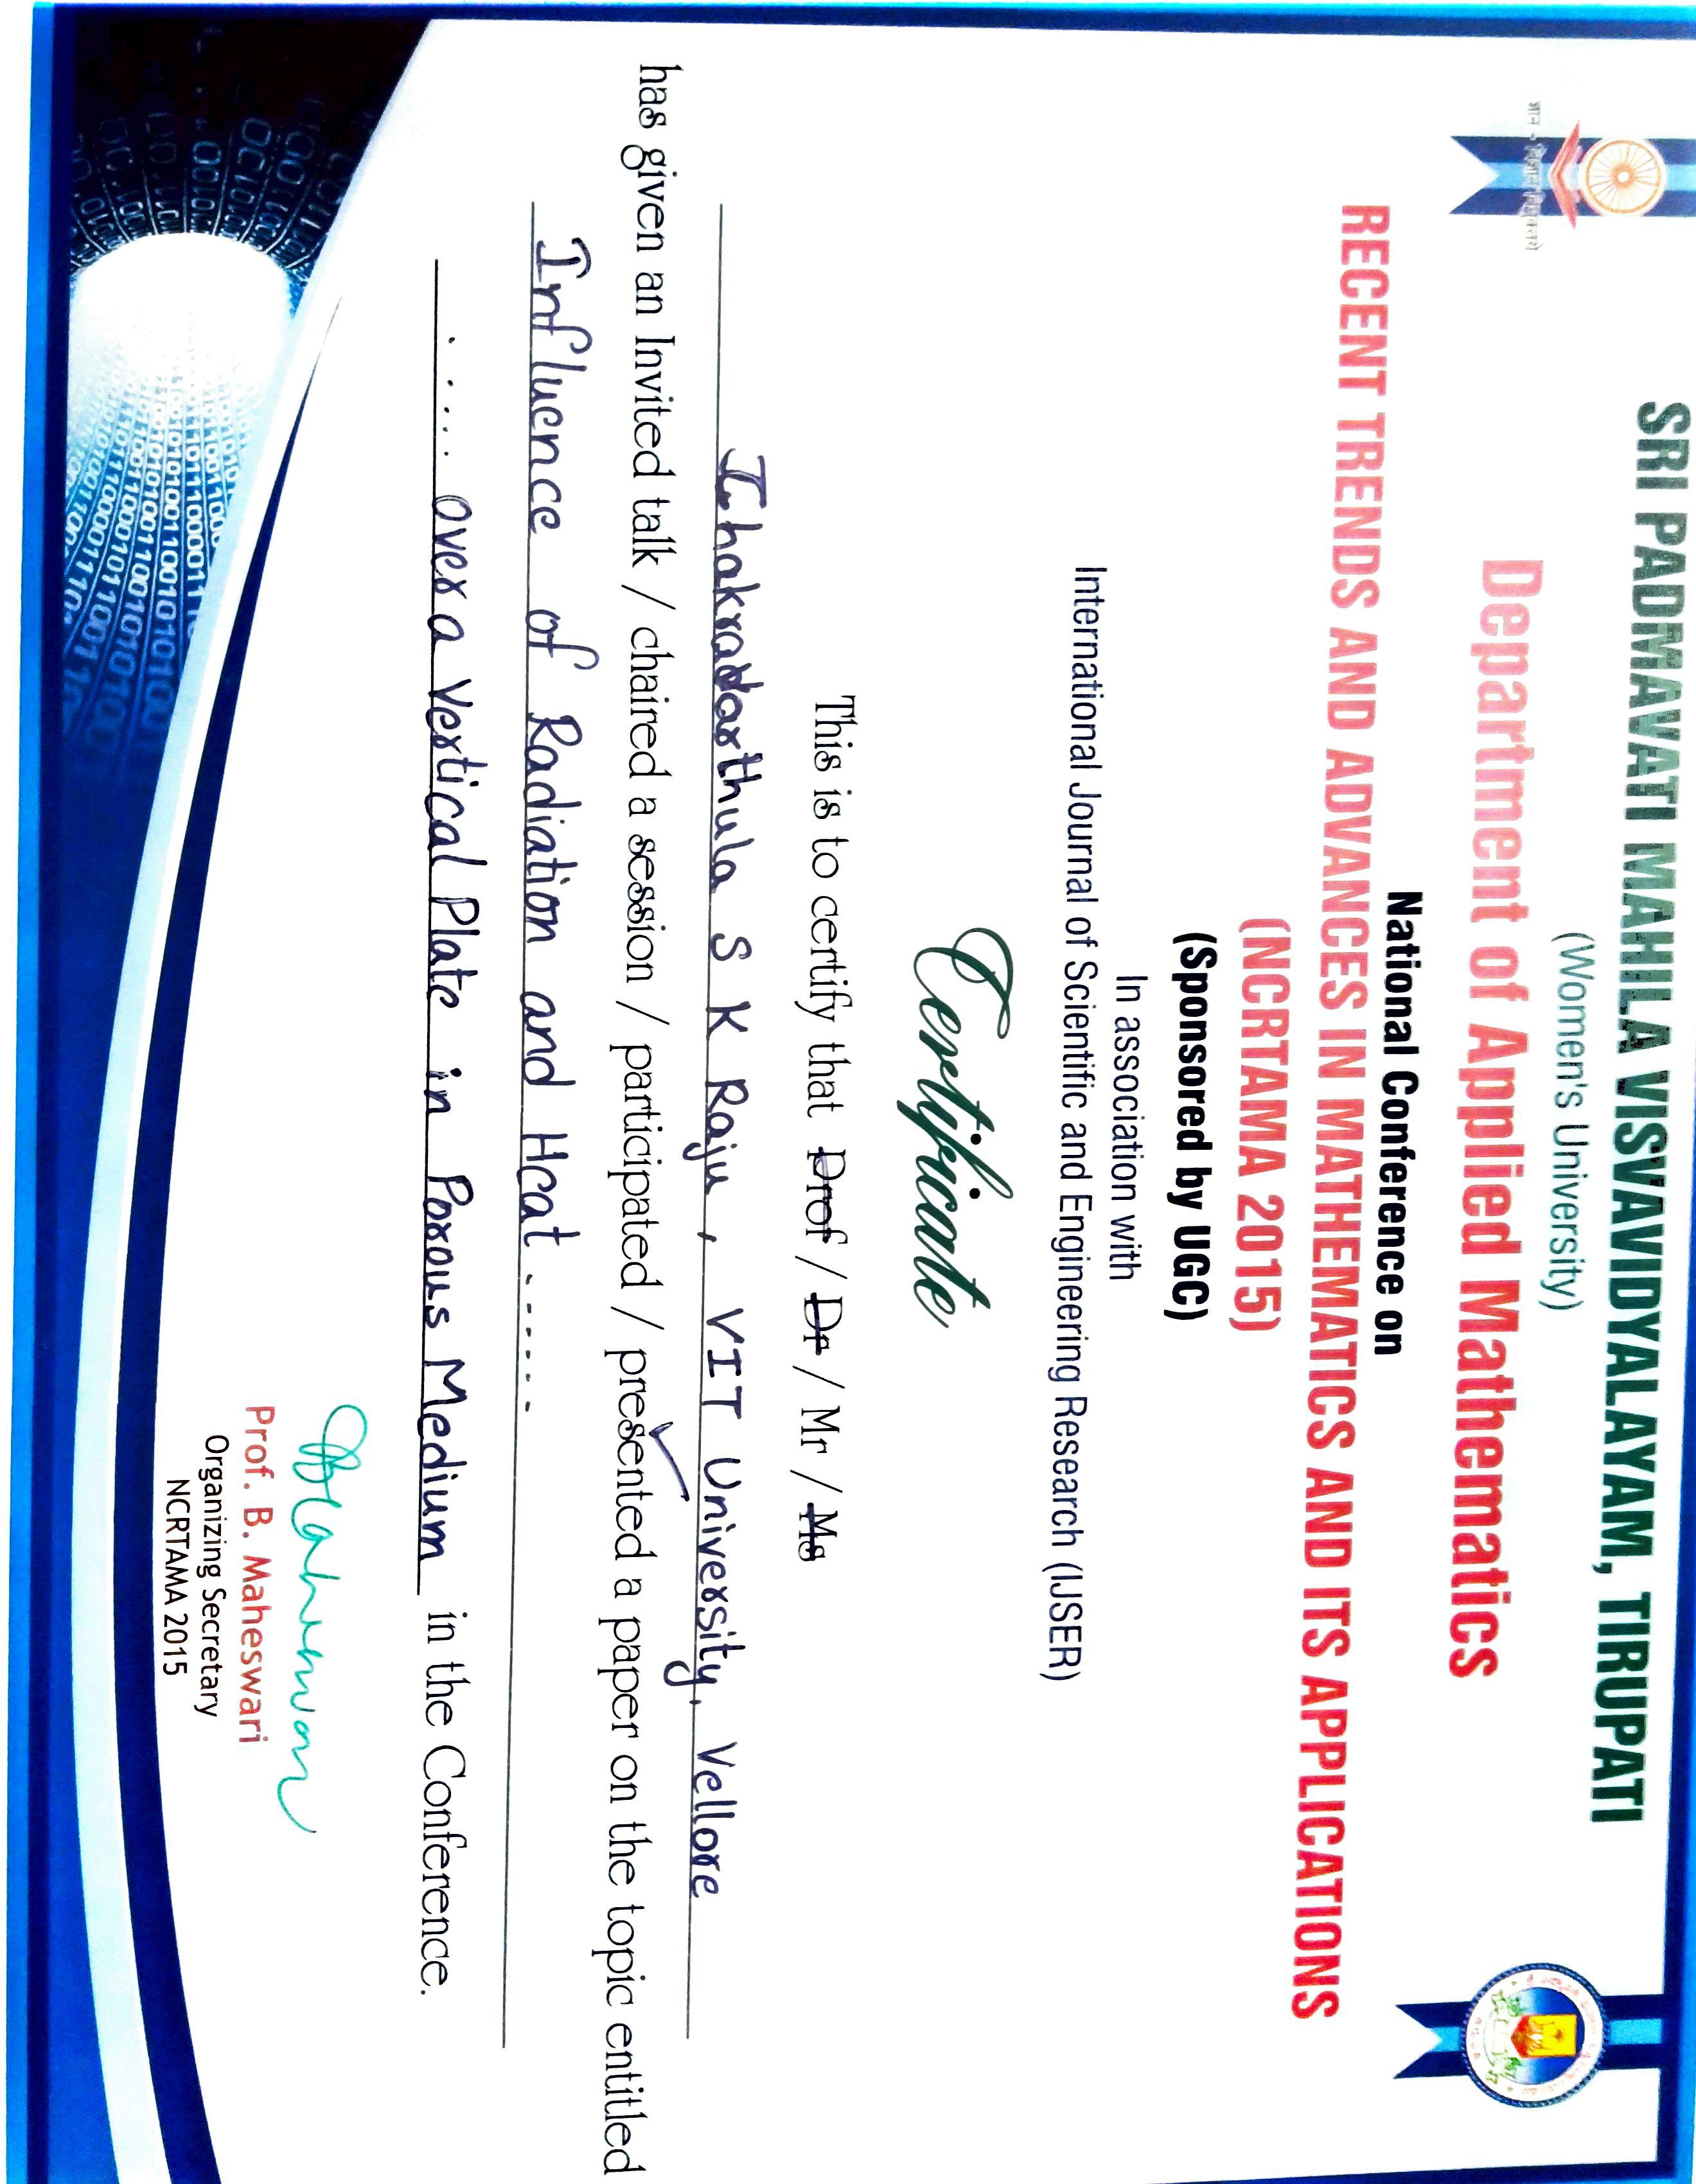 SRI PADMAVATI MAHILA VISVAVIDYALAYAM, TIRUPATI
(Women's University)
Department of Applied Mathematics
National Conference on
RECENT TRENDS AND ADVANCES IN MATHEMATICS AND ITS APPLICATIONS
(NCRTAMA 2015)
(Sponsored by UGC)
In association with
International Journal of Scientific and Engineering Research (IJSER)
Certificate
This is to certify that Prof / Dr / Mr / Ms
S K Raju, VIT University, Vellore
has given an Invited talk / chaired a session / participated / presented a paper on the topic entitled
Influence of Radiation and Heat ......
..... over a Vertical Plate in Porous Medium in the Conference.
Prof. B. Maheswari
Organizing Secretary
NCRTAMA 2015